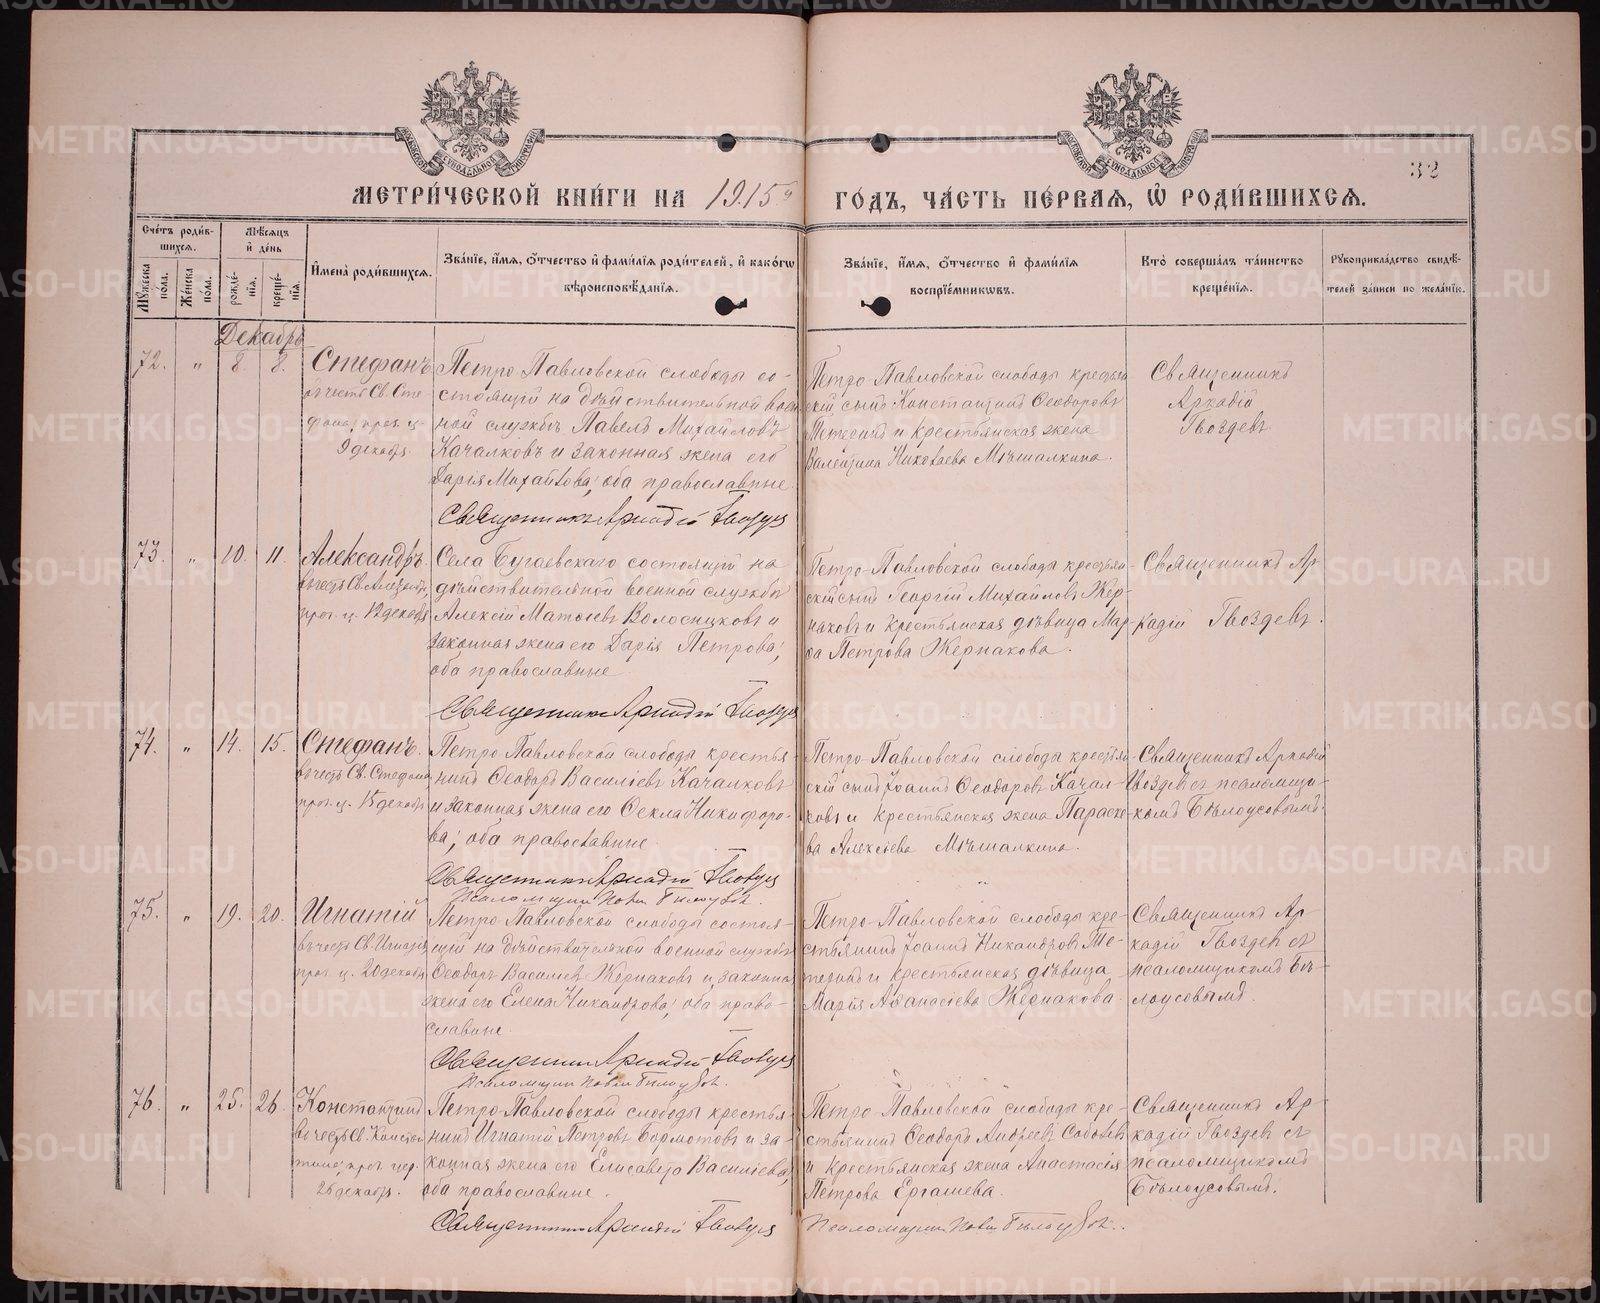 32
МЕТРИ́ЧЕСКОЙ КНИ́ГИ НА 1915й ГО́ДЪ, ЧА́СТЬ ПЕ́РВАЯ, Ѽ РОДИ́ВШИХСЯ.
Сче́тъ роди́в-
шихся.
Мꙋ́жеска по́ла.
Же́нска по́ла.
Мѣ́сяцъ и҆ де́нь
рожде́-
нїя.
креще́-
нїя.
И҆мена̀ роди́вшихся.
Зва́нїе, и҆́мя, ѻ҆́тчество и҆ фами́лїя роди́телей, и҆ како́гѡ
вѣроисповѣ́данїя.
Зва́нїе, и҆́мя, ѻ҆́тчество и҆ фами́лїя
воспрїе́мниковъ.
Кто̀ соверша́лъ та́инство
креще́нїя.
Рꙋкоприкла́дство свидѣ́-
телей за́писи по жела́нїю.
Декабрь
72. " 8 8.
Стефанъ
въ честь Св. Сте
9 декабря.
Петро Павловской слободы со-
стоящій на дѣйствительной воен
ной службѣ Павелъ Михайловъ
Качалковъ и законная жена его
Дарія Михайлова; оба православные.
Священникъ Аркадій Гвоздев
Петро-Павловской слободы крестьян
скій сынъ Константинъ Ѳеодоровъ
и крестьянская жена
Валентина Николаева Мѣшалкина.
Священникъ
Аркадій
Гвоздевъ.
73. " 10. 11.
Александръ
въ честь Св. Александра,
12 декабря
Села Бугаевскаго состоящій на
дѣйствительной военной службѣ
Алексій Матѳіевъ Волосниковъ и
законная жена его Дарія Петрова;
оба православные
Священникъ Аркадій Гвоздев
Петро-Павловской слободы крестьян
скій сынъ Георгій Михайловъ Жер-
наковъ и крестьянская дѣвица Мар-
ѳа Петрова Жернакова.
Священникъ Ар
кадій Гвоздевъ.
74. " 14. 15.
Стефанъ
въ честь Св. Стефана
15 декабря
Петро-Павловской слободы крестья-
нинъ Ѳеодоръ Василіевъ Качалковъ
и законная жена его Ѳекла Никифоро-
ва; оба православные
Священникъ Аркадій Гвоздев
Псаломщик
Петро-Павловской слободы крестьян
скій сынъ Іоаннъ Ѳеодоровъ Качал-
ковъ и крестьянская жена Параске-
ва Алексіева Мѣшалкина.
Священникъ Аркадій
Гвоздевъ съ псаломщи-
комъ Бѣлоусовымъ.
75. " 19. 20.
Игнатій
въ честь Св. Игнатія
20 декабря
Петро-Павловской слободы состоя-
щій на дѣйствительной военной службѣ
Ѳеодоръ Василіевъ Жернаковъ и законна
жена его Елена Никандрова; оба право-
славные.
Священник Аркадій Гвоздев
Псаломщик
Петро-Павловской слободы кре-
стьянинъ Іоаннъ Никандровъ Те-
и крестьянская дѣвица
Марія Аѳанасіева Жернакова
Священникъ Ар
кадій Гвоздевъ съ
псаломщикомъ Бѣ-
лоусовымъ.
76. " 25. 26.
Константинъ
въ честь Св. Констан
26 декабря.
Петро-Павловской слободы крестья-
нинъ Игнатій Петровъ Бормотовъ и за-
конная жена его Елисавета Василіева;
оба православные.
Священник Аркадій Гвоздев
Петро-Павловской слободы кре-
стьянинъ Ѳеодоръ Андреевъ
и крестьянская жена Анастасія
Петрова Ергашева.
Псаломщик
Священникъ Ар
кадій Гвоздевъ съ
псаломщикомъ
Бѣлоусовымъ.
METRIKI.GASO-URAL.RU